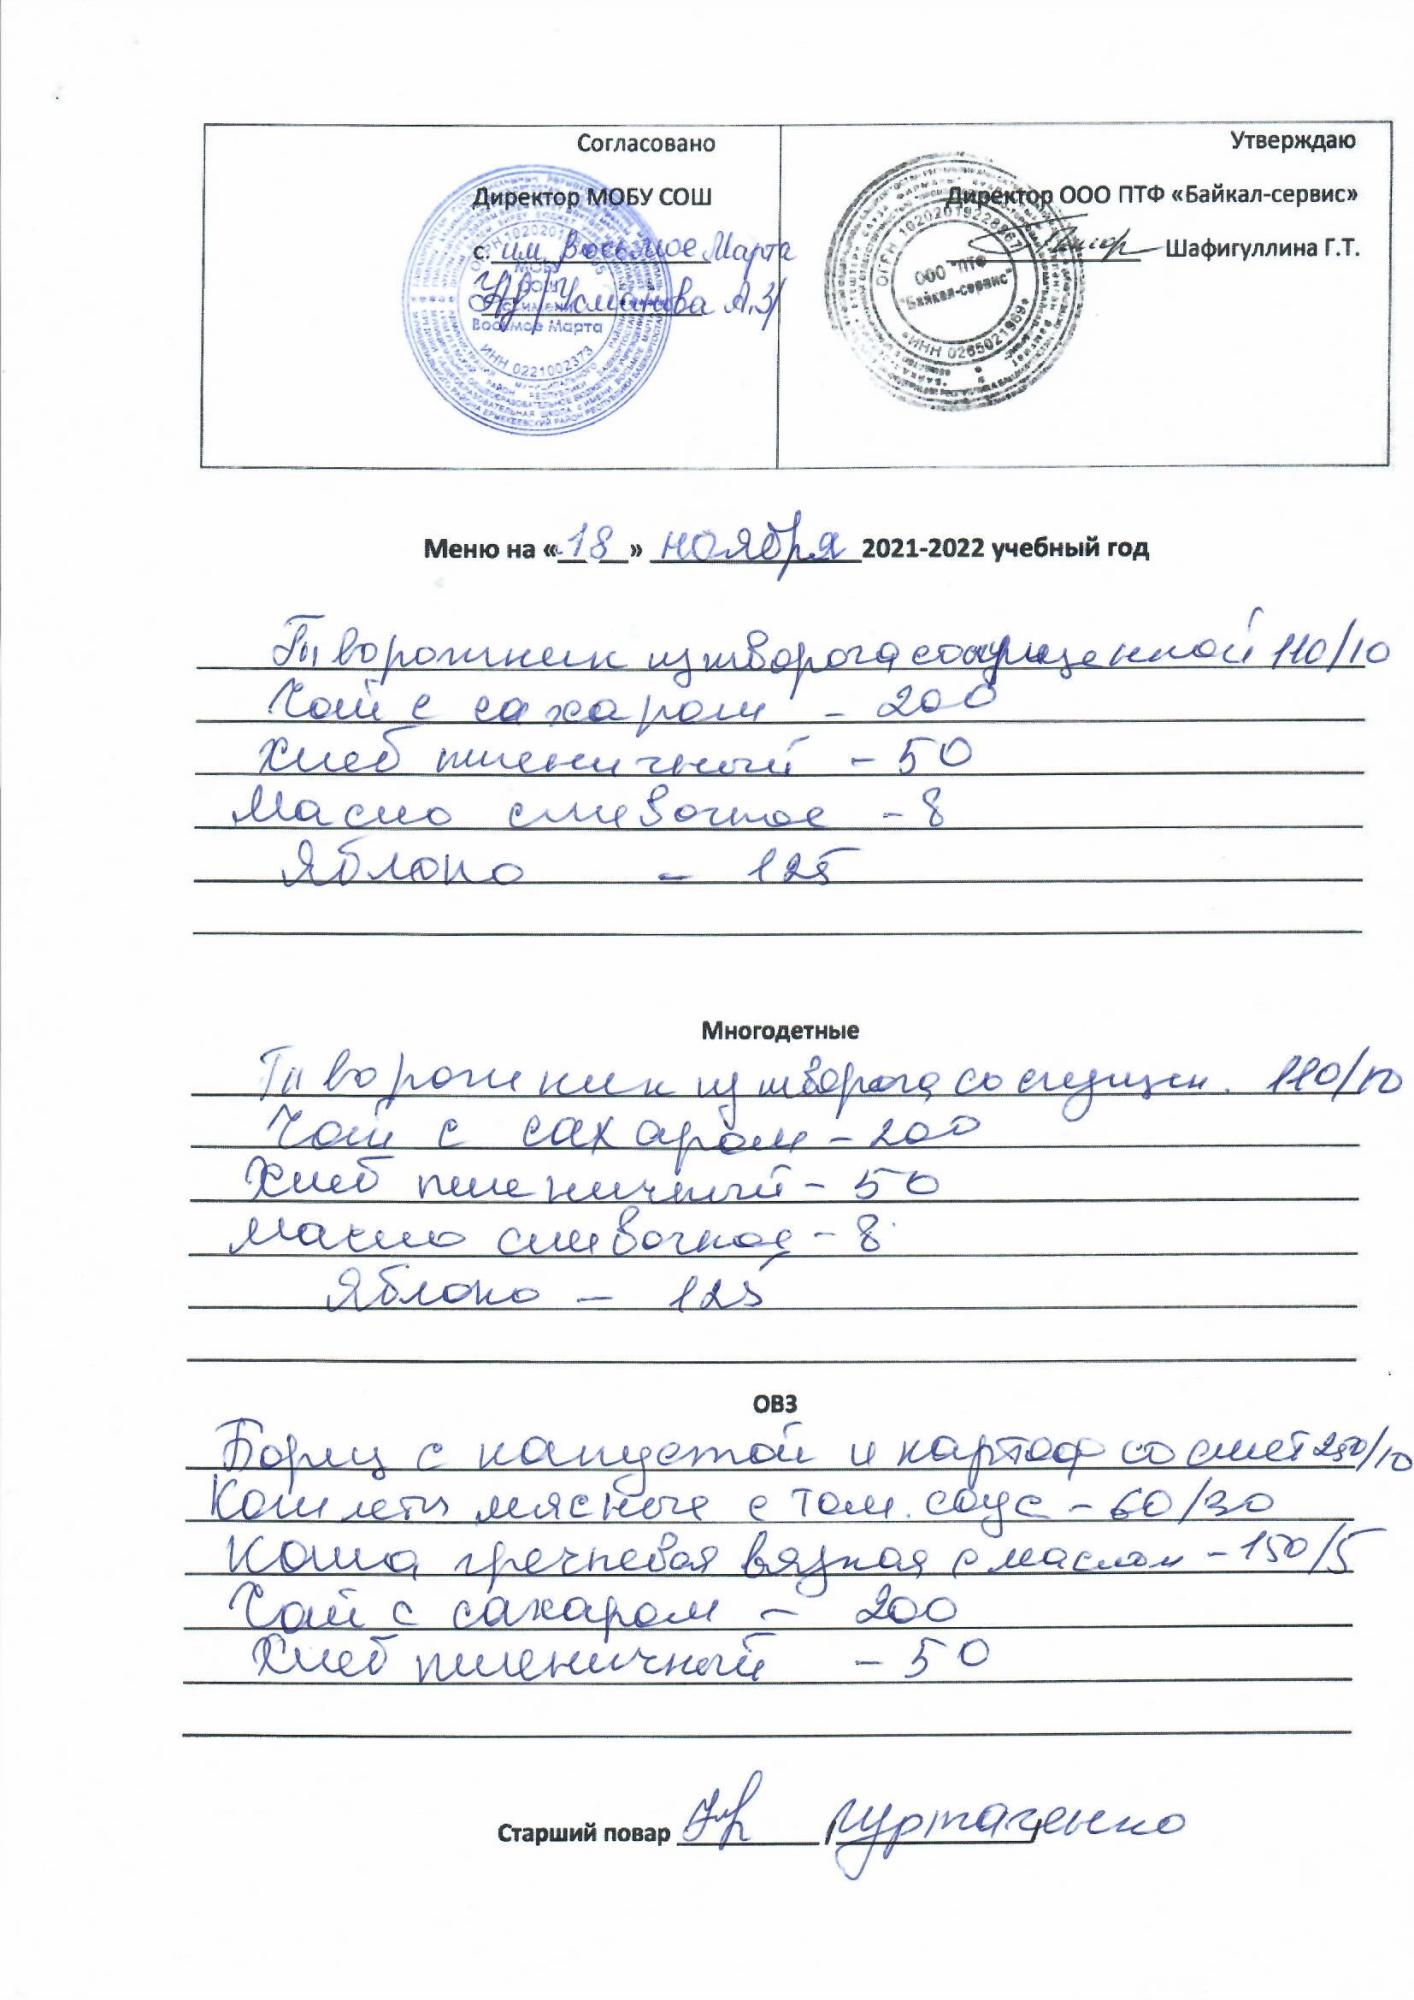 Согласовано
Директор МОБУ СОШ
с. им Восьмое Марта
/Усманова А.З/
МОБУ
СОШ
с.имени
Восьмое Марта
ИНН 0221002373
Утверждаю
Директор ООО ПТФ «Байкал-сервис»
Шафигуллина Г.Т.
ООО "ПТФ
"Байкал-сервис"
ИНН 0265021969
Меню на «18» ноября 2021-2022 учебный год
Творожник из творога со сгущенной 110/10
Чай с сахаром - 200
Хлеб пшеничный - 50
Масло сливочное - 8
Яблоко - 125
Многодетные
Творожник из творога со сгущен. 110/10
Чай с сахаром - 200
Хлеб пшеничный - 50
Масло сливочное - 8
Яблоко - 125
ОВЗ
Борщ с капустой и картоф со смет 250/10
Котлеты мясные с том. соус - 60/30
Каша гречневая вязкая с маслом - 150/5
Чай с сахаром - 200
Хлеб пшеничный - 50
Старший повар